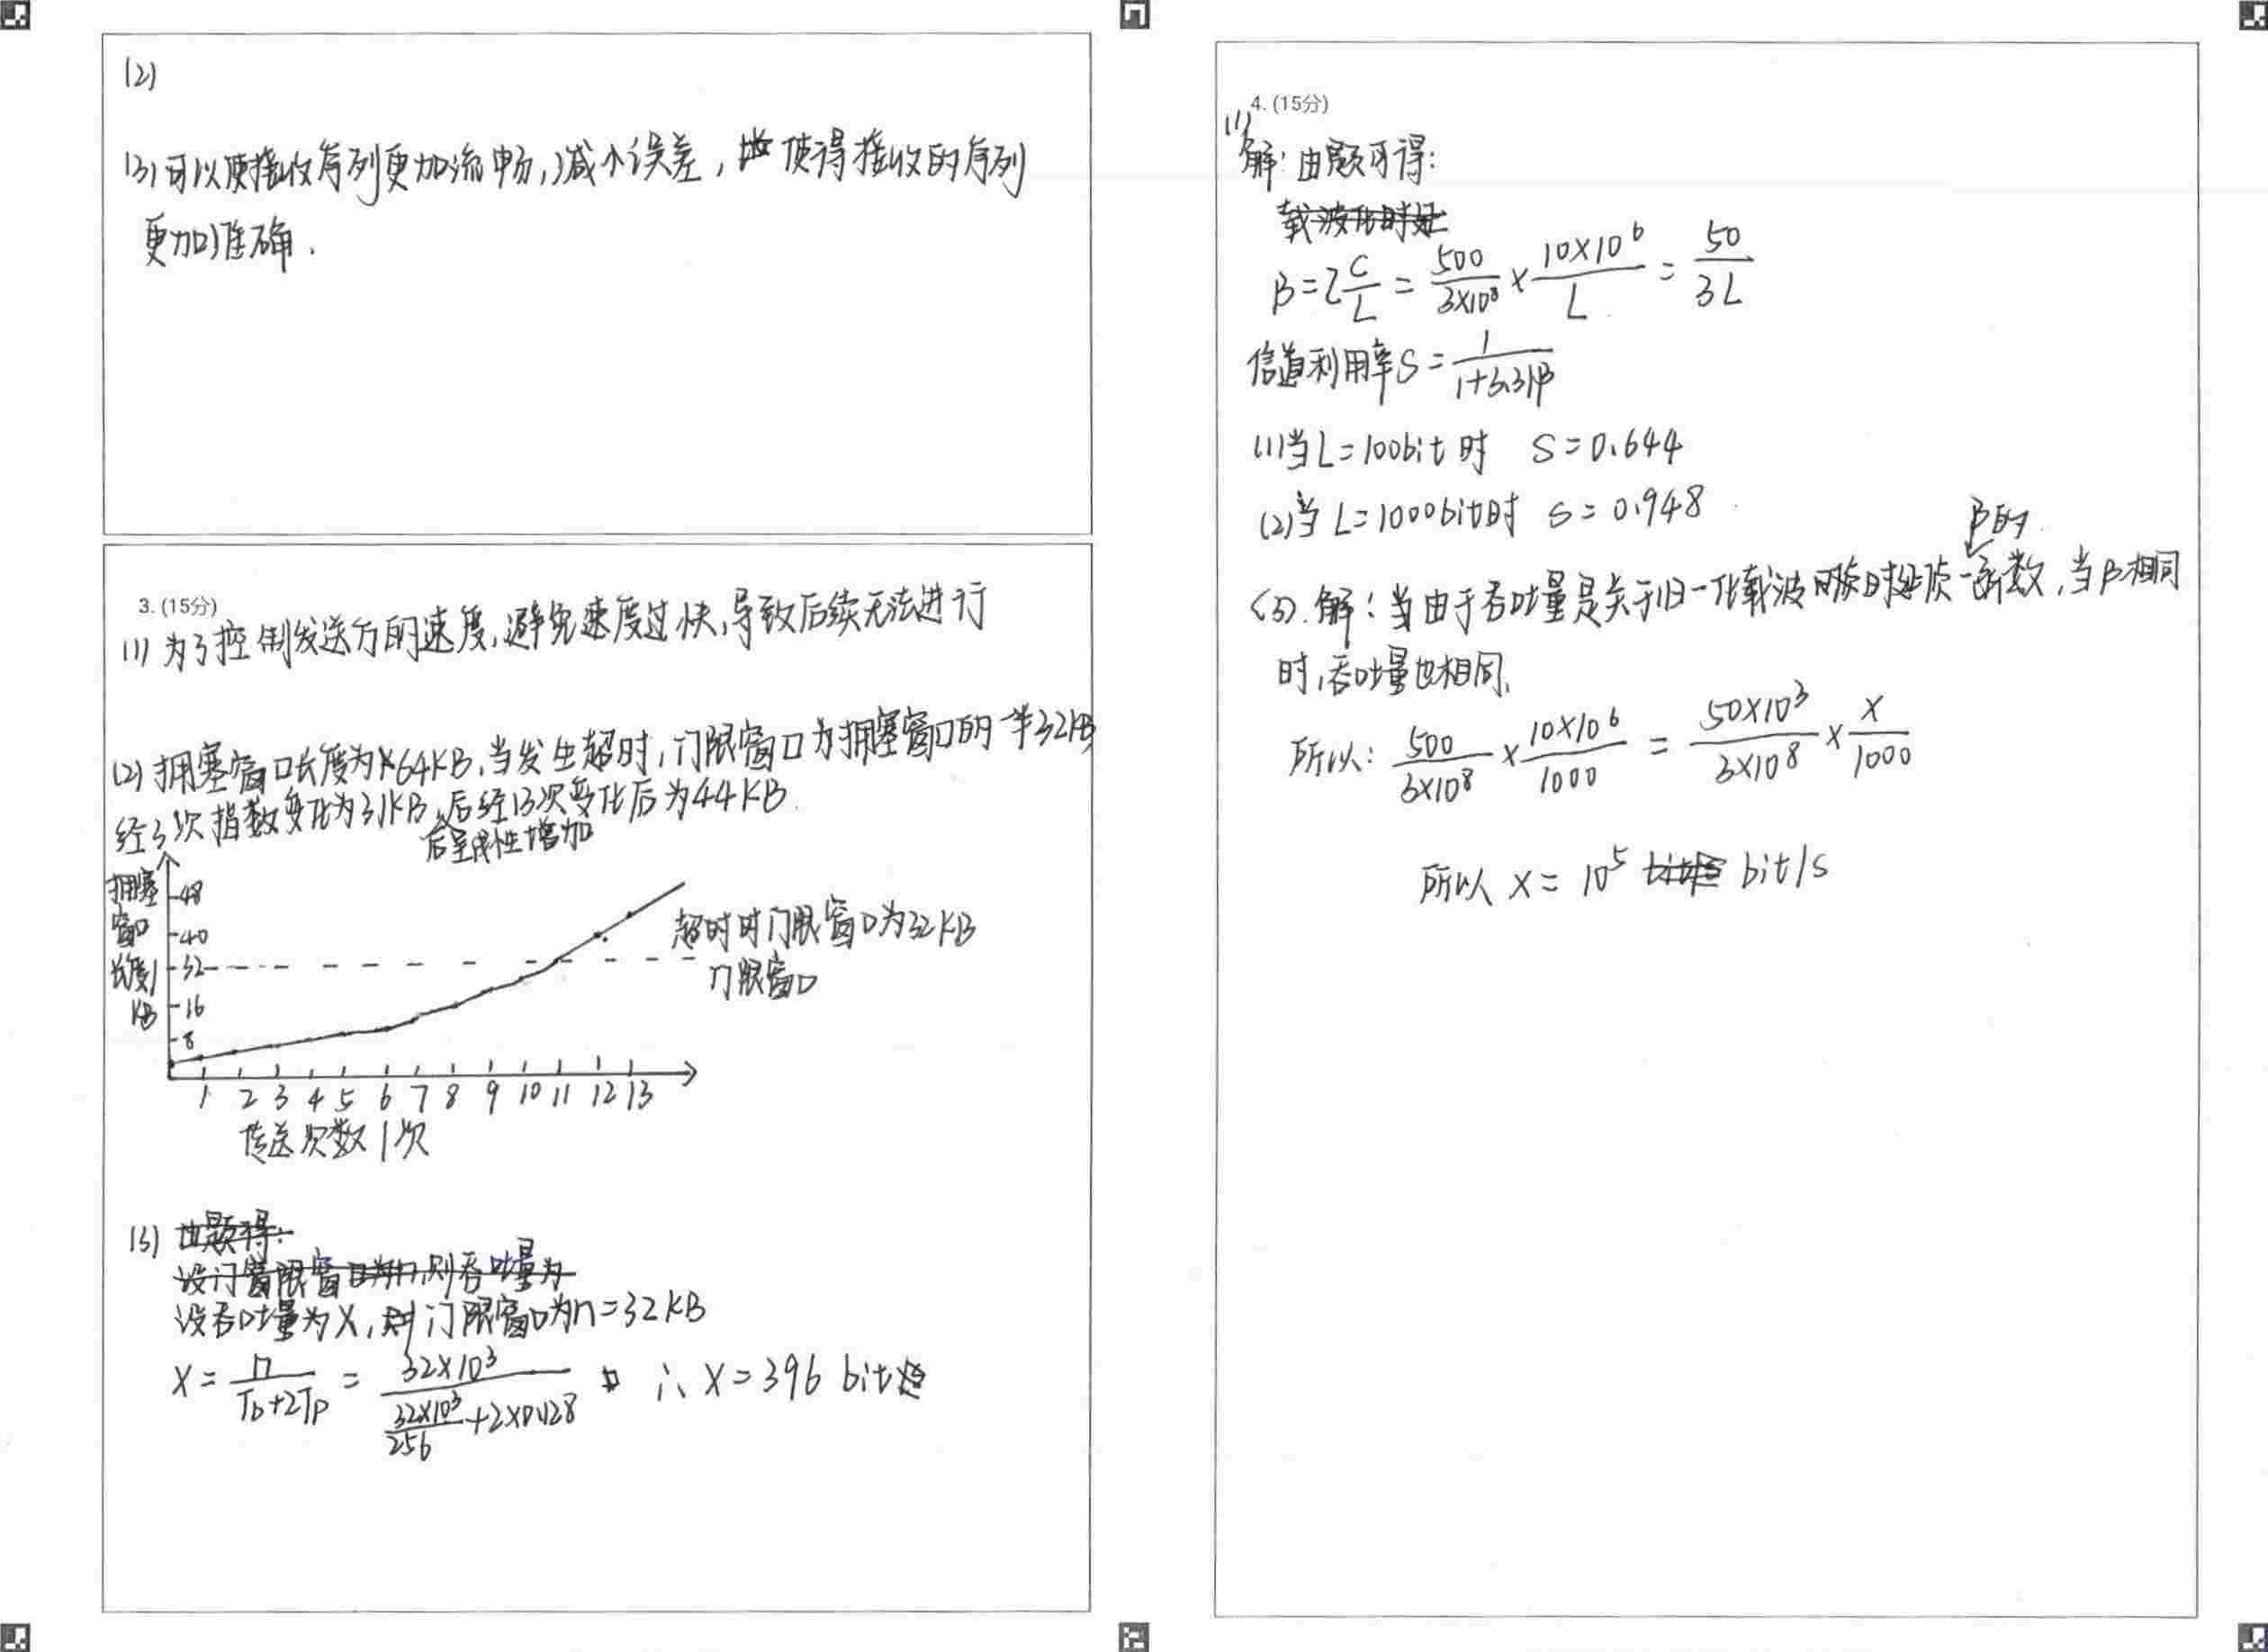 (2)
(3)可以使接收序列更加流畅,减小误差,使得接收的序列
更加准确.
3. (15分)
(1)为了控制发送方的速度,避免速度过快,导致后续无法进行
(2)拥塞窗口长度为64KB,当发生超时,门限窗口为拥塞窗口的一半32KB
经3次指数变化为31KB,后经13次变化后为44KB.
后呈线性增加
拥塞
窗口
长度/
KB
48
40
32
16
8
超时时门限窗口为32KB
门限窗口
1 2 3 4 5 6 7 8 9 10 11 12 13
传送次数/次
(3) 由题得:
设门窗限窗口为n,则吞吐量为
设吞吐量为X,则门限窗口为n=32KB
X = n/(Tb+2Tp) = 32×10³/(32×10³/256 + 2×0.128) ∴ X=396 bit
4. (15分)
(1)
解:由题可得:
载波化时延
β=τC/L = 500/3×10⁸ × 10×10⁶/L = 50/3L
信道利用率S = 1/(1+3.31β)
(1)当L=100bit时 S=0.644
(2)当L=1000bit时 S=0.948
β的
(3).解:当由于吞吐量是关于归一化载波 函数,当β相同
时,吞吐量也相同,
所以: 500/3×10⁸ × 10×10⁶/1000 = 50×10³/3×10⁸ × X/1000
所以 X= 10⁵ bit/s